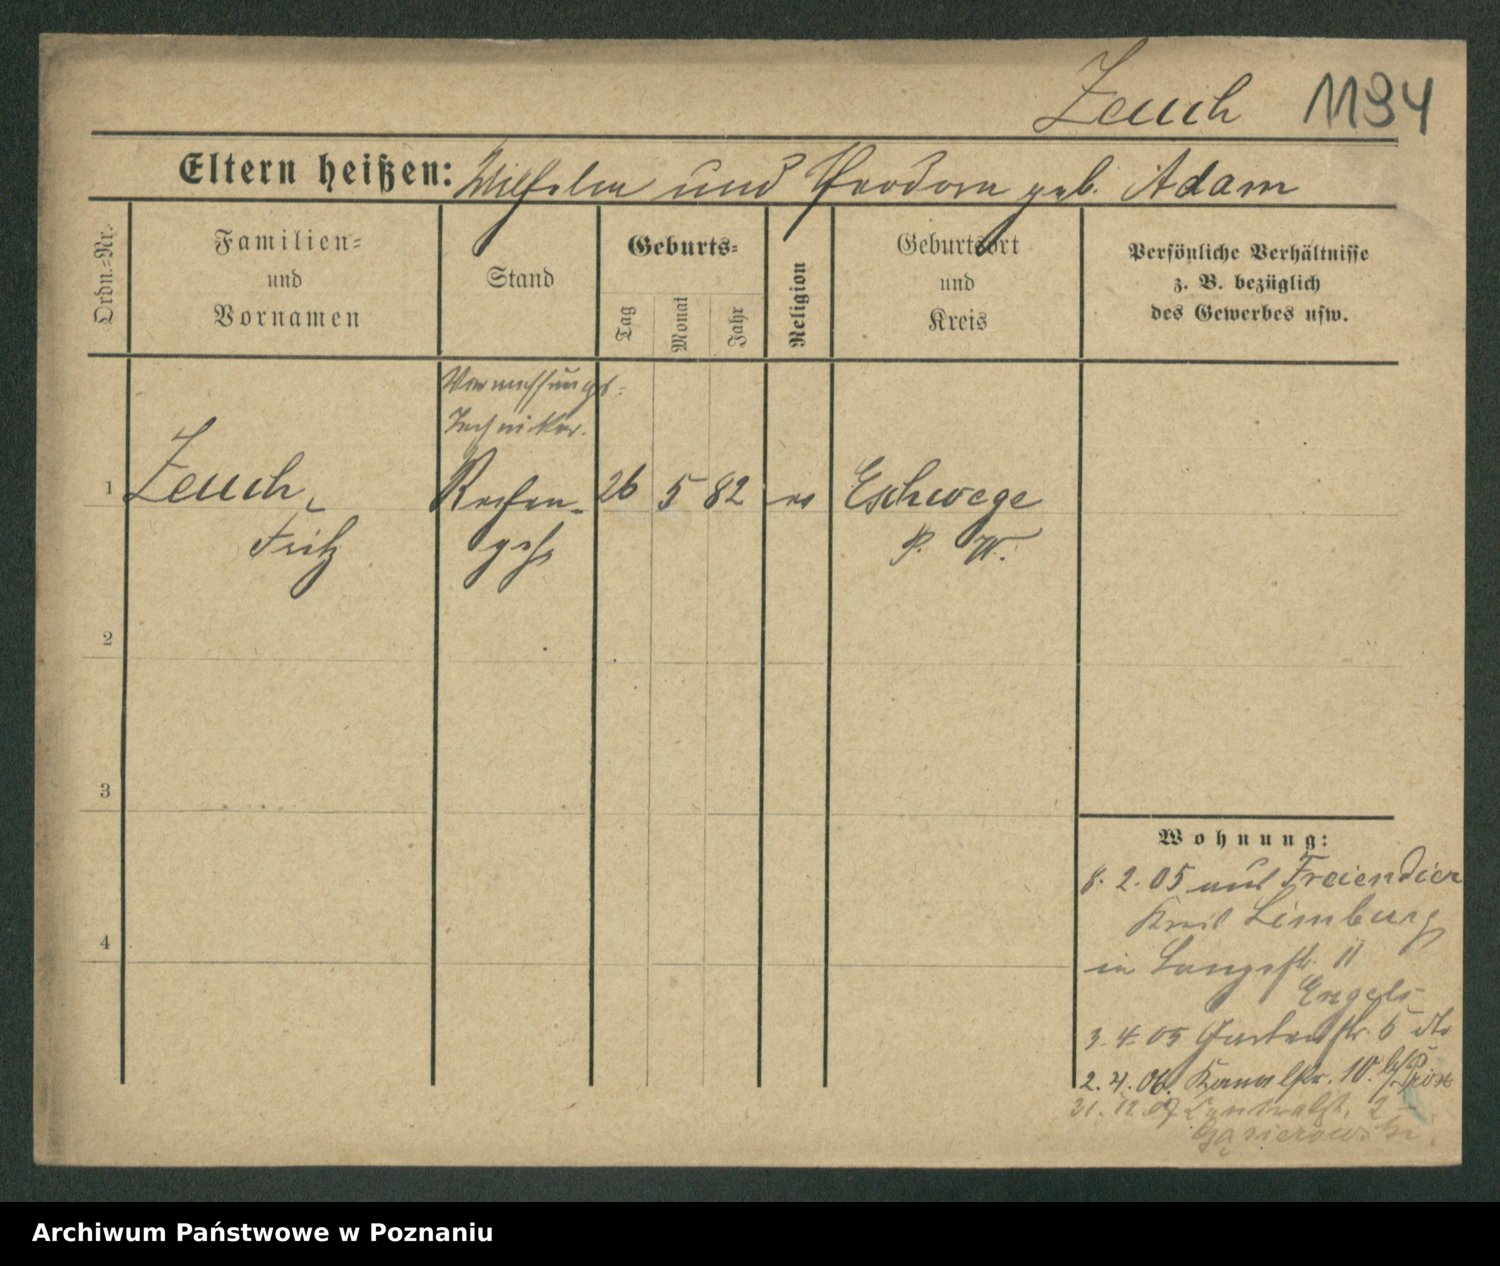 Zeuch 1194
Eltern heißen: Wilhelm und Theodora geb. Adam
Ordn.-Nr.
Familien-
und
Vornamen
Stand
Geburts-
Tag
Monat
Jahr
Religion
Geburtsort
und
Kreis
Persönliche Verhältnisse
z. B. bezüglich
des Gewerbes usw.
Vermessungs-
Techniker.
1 Zeuch, 26 5 82 ev Eschwege
Fritz
P. W.
2
3
4
Wohnung:
8. 2. 05 aus Freiendiez
Kreis Limburg
in Langestr. 11
Engels
3. 4. 05 Gartenstr. 5
2. 4. 06. Kanalstr. 10.
31. 12. 07 Centralstr. 2
Gąsierowski.
Archiwum Państwowe w Poznaniu